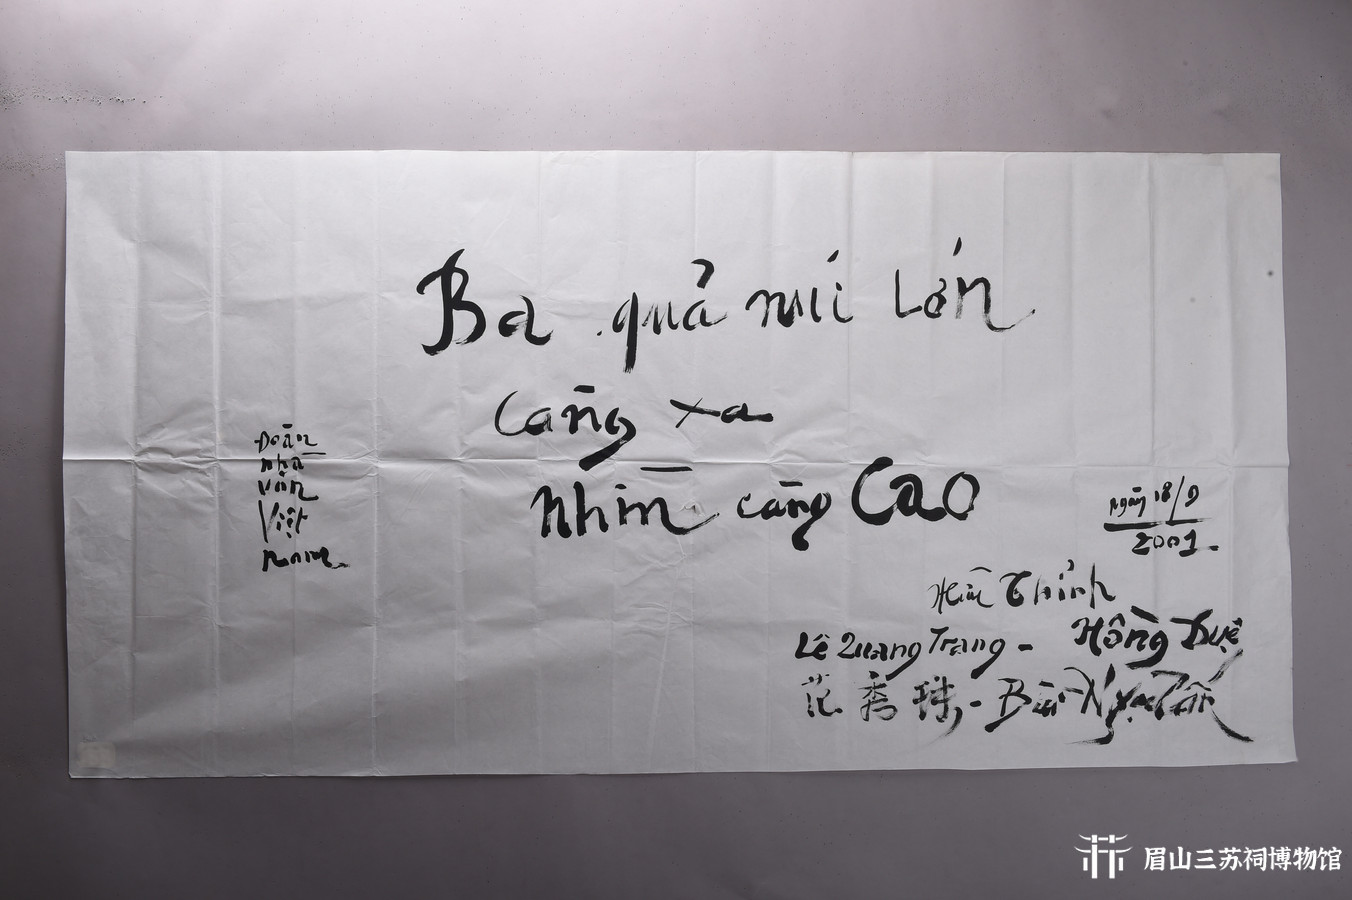 Ba quả núi lớn
Càng xa
Nhìn càng Cao
Đoàn
nhà
văn
Việt
nam.
ngày 18/9
2001.
Hữu Thỉnh
Lê Quang Trang - Hồng Duệ
范秀珠 - Bùi Ngọc Tấn
眉山三苏祠博物馆